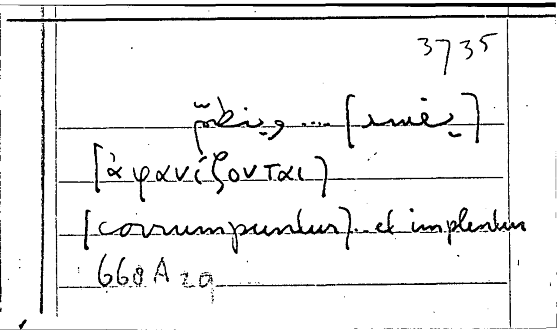 3735
....
[ἀφανίζονται]
[corrumpuntur].. et implentur
668A 29